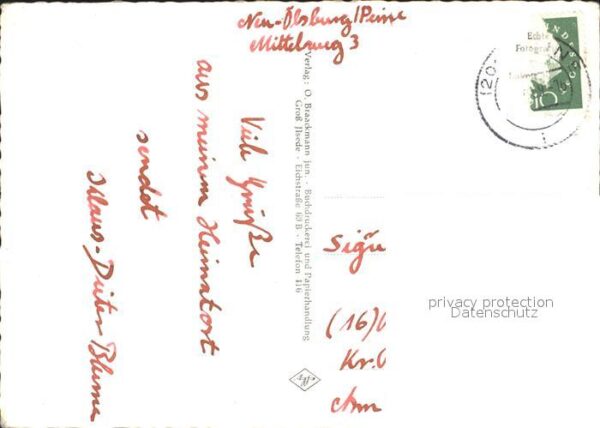 Neu-Ölsburg/Peine
Mittelweg 3
Viele Grüße
aus meinem Heimatort
sendet
Klaus-Dieter Blume
Verlag: O. Braackmann jun. - Buchdruckerei und Papierhandlung
Groß Ilsede - Eichstraße 60 B - Telefon 116
Echte
Fotogra
10
(20
privacy protection
Datenschutz
(16)
Kr.